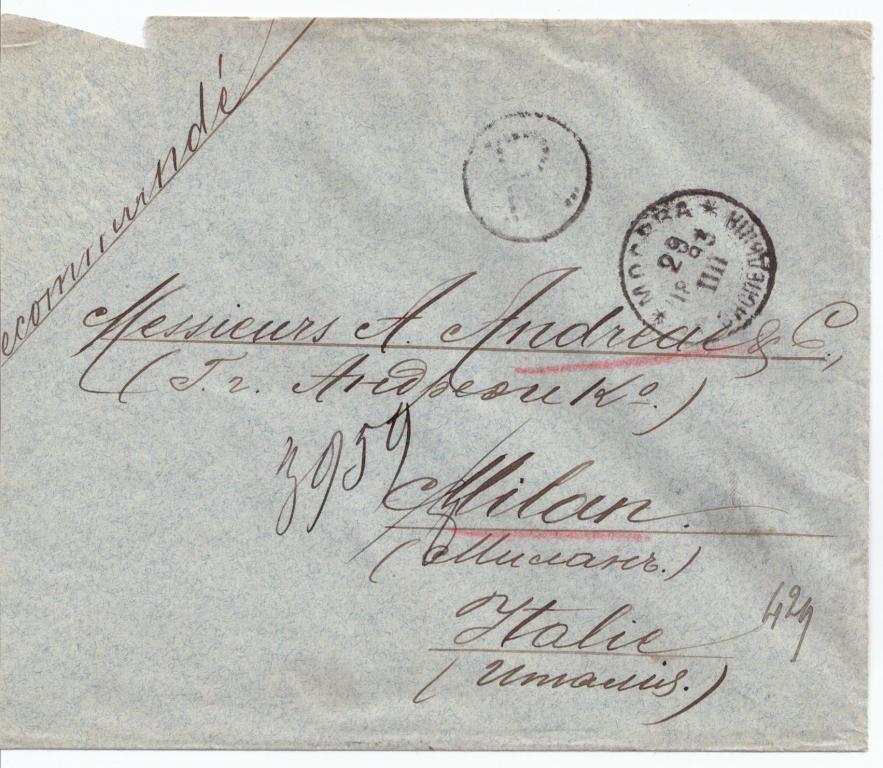 ecommandé
МОСКВА * ЭКСПЕДИЦІЯ *
29
Messieurs A. Andreae & C.,
(Г. г. Андреэ и Ко.)
3959
Milan.
(Миланъ.)
Italie
429
(Италія.)